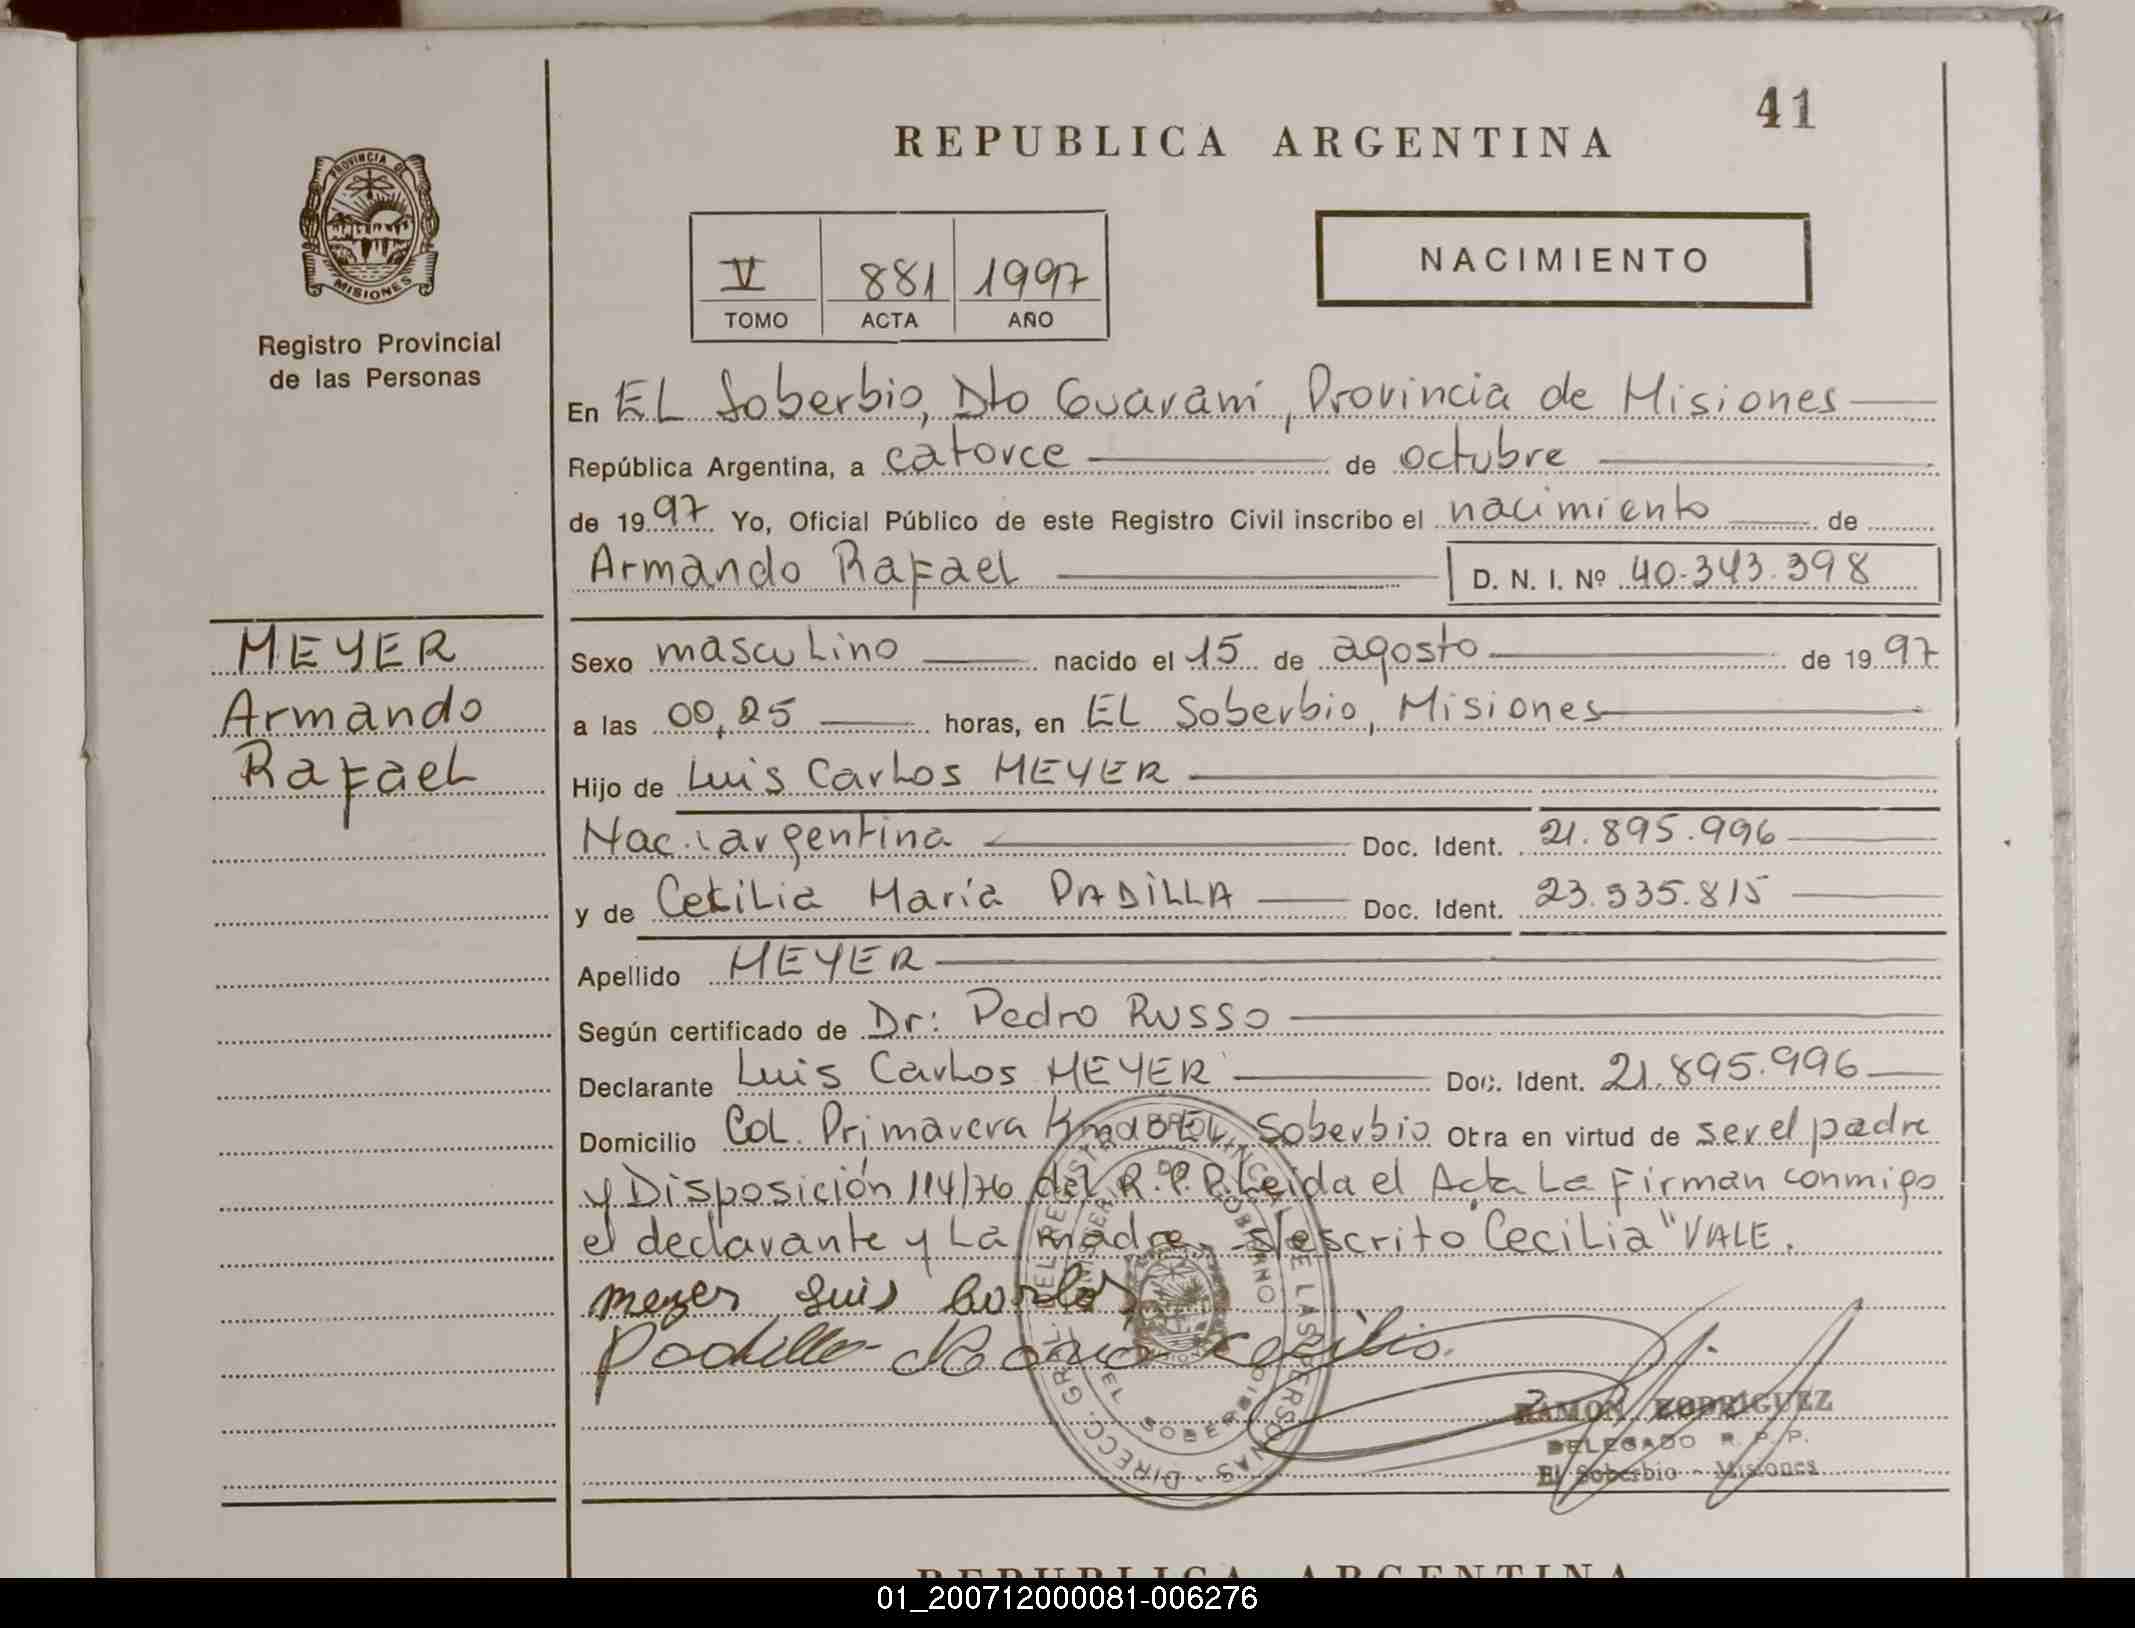 41
REPUBLICA ARGENTINA
PROVINCIA DE
MISIONES
Registro Provincial
de las Personas
V 881 1997
TOMO ACTA AÑO
NACIMIENTO
En EL Soberbio, Dto Guaraní, Provincia de Misiones
República Argentina, a catorce de octubre
de 1997 Yo, Oficial Público de este Registro Civil inscribo el nacimiento de
Armando Rafael D. N. I. Nº 40.343.398
MEYER
Armando
Rafael
Sexo masculino nacido el 15 de agosto de 1997
a las 00,25 horas, en EL Soberbio, Misiones
Hijo de Luis Carlos MEYER
Nac. argentina Doc. Ident. 21.895.996
y de Cecilia María PADILLA Doc. Ident. 23.935.815
Apellido MEYER
Según certificado de Dr: Pedro Russo
Declarante Luis Carlos MEYER Doc. Ident. 21.895.996
Domicilio Col. Primavera EL Soberbio Obra en virtud de ser el padre
y Disposición 114/76 del R.P.P. Leida el Acta La Firman conmigo
el declarante y La madre. S/escrito "Cecilia" VALE.
meyer Luis Carlos
Padilla Maria Cecilia
RAMON RODRIGUEZ
DELEGADO R. P. P.
El Soberbio - Misiones
DIRECC. GRAL. EL REGISTRO PROVINCIAL DE LAS PERSONAS
EL SOBERBIO
REPUBLICA ARGENTINA
01_200712000081-006276